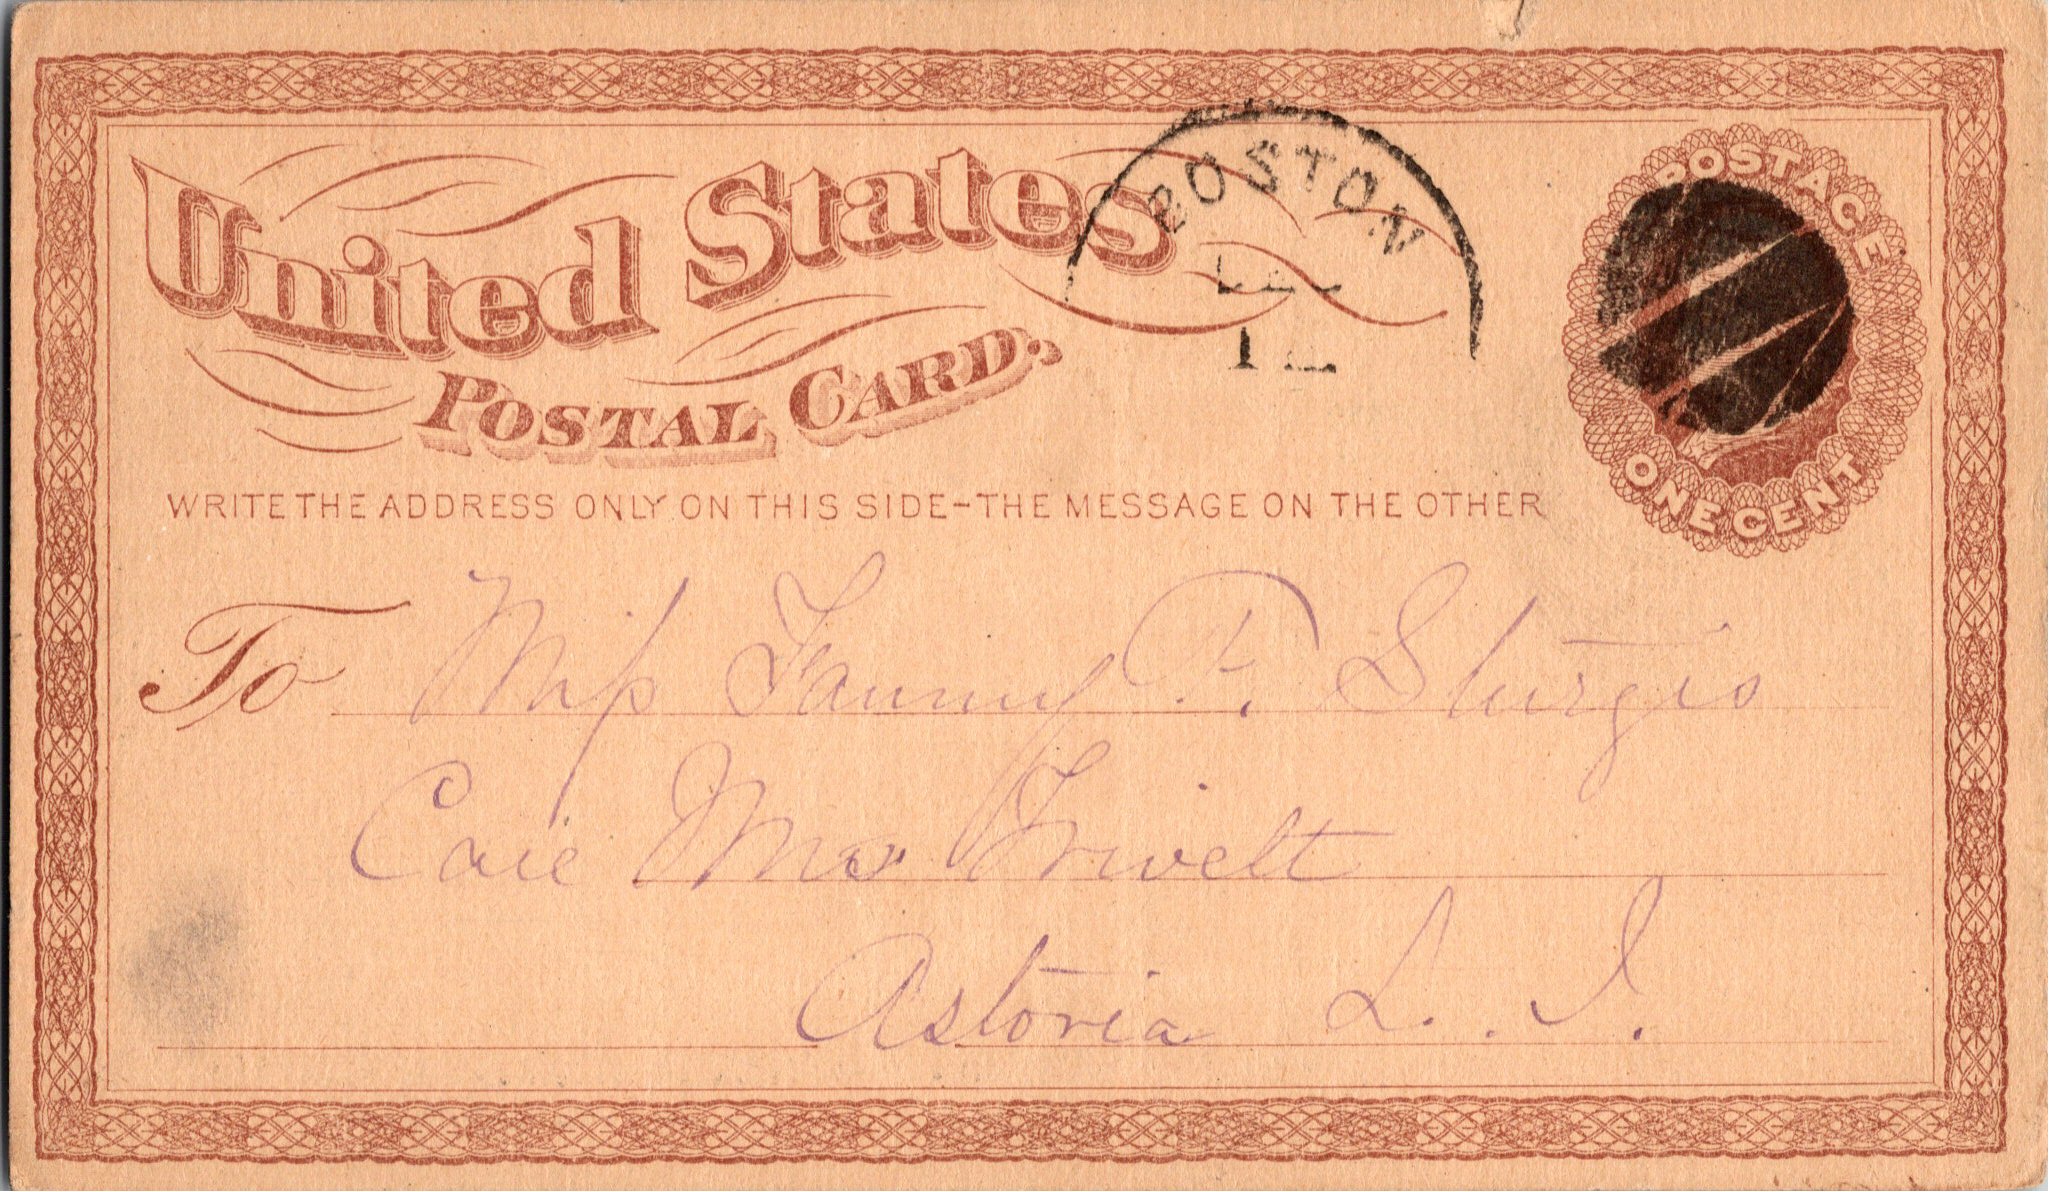 United States
POSTAL CARD.
BOSTON
POSTAGE
ONE CENT
WRITE THE ADDRESS ONLY ON THIS SIDE-THE MESSAGE ON THE OTHER
To Miss Fanny F. Sturgis
Care Mrs
Astoria L. I.